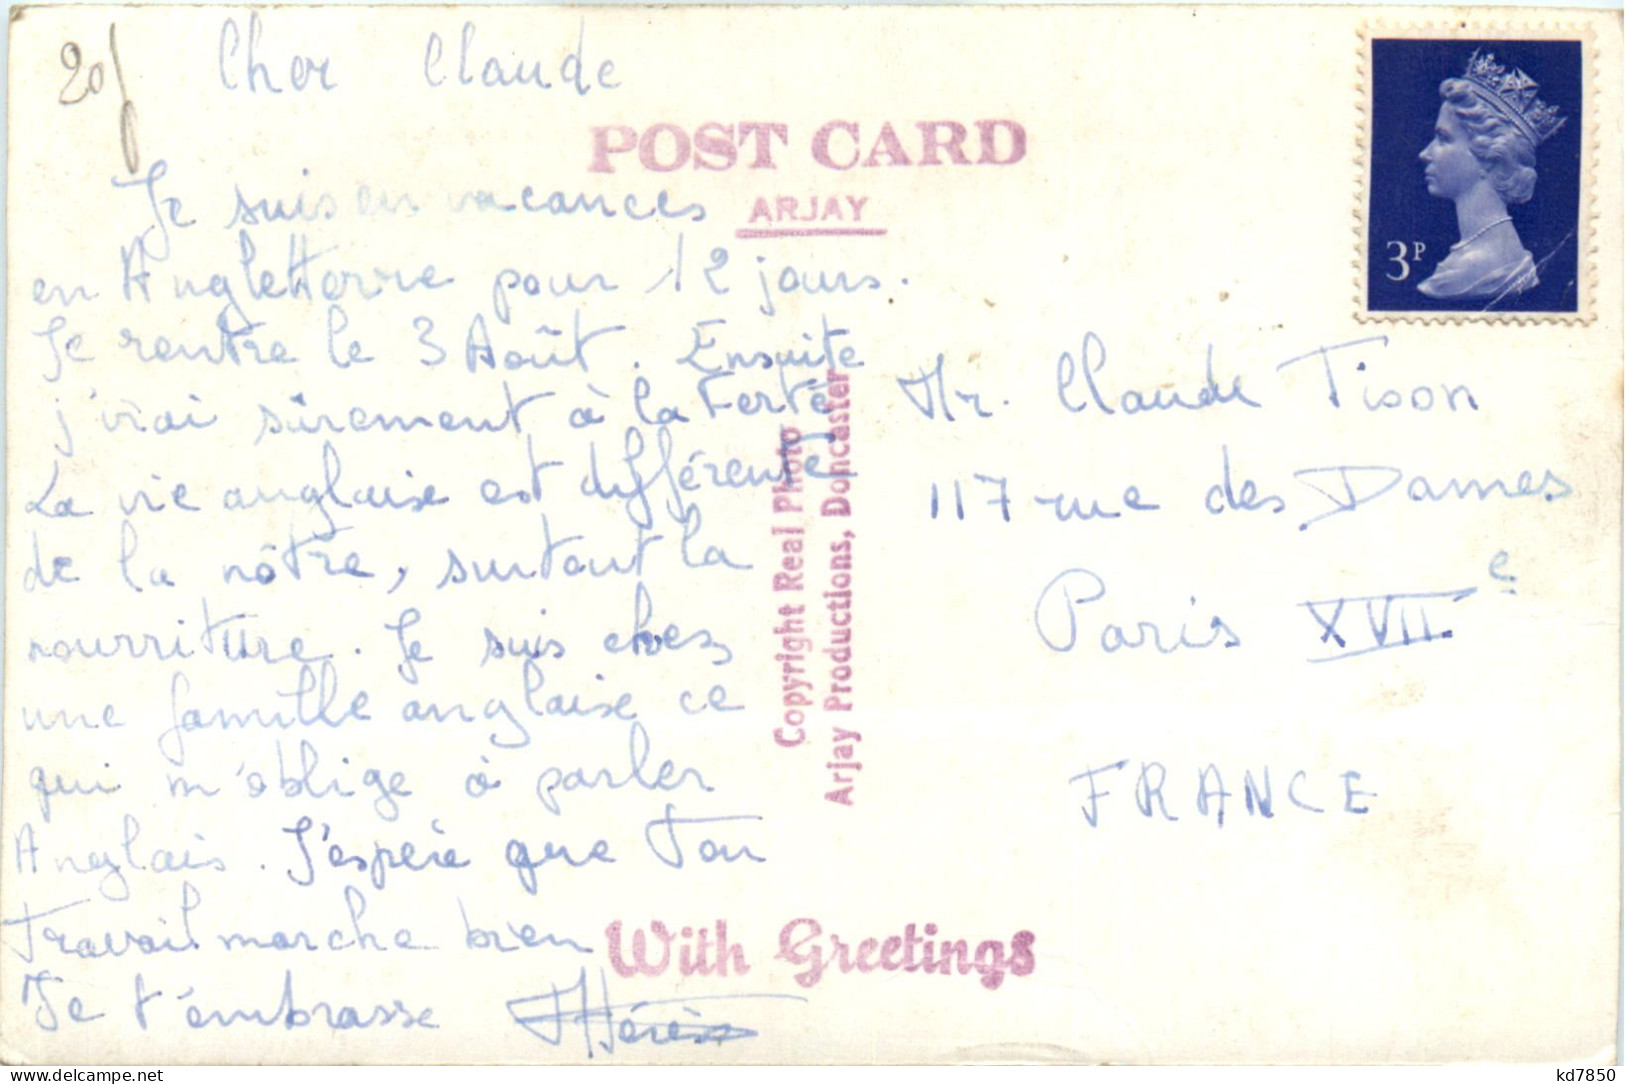 20f
Cher Claude
POST CARD
ARJAY
Je suis en vacances
en Angleterre pour 12 jours.
Je rentre le 3 Août. Ensuite
j'irai sûrement à la Ferté
La vie anglaise est différente
de la nôtre, surtout la
nourriture. Je suis chez
une famille anglaise ce
qui m'oblige à parler
Anglais. J'espère que ton
travail marche bien
Je t'embrasse Thérèse
With Greetings
Copyright Real Photo
Arjay Productions, Doncaster
3P
Mr. Claude Tison
117 rue des Dames
Paris XVIIe
FRANCE
kd7850